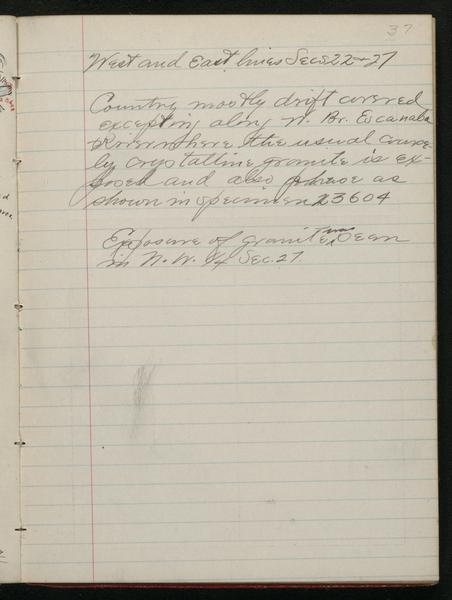 37
West and East lines Secs 22 + 27
Country mostly drift covered
excepting along N. Br. Escanaba
River where the usual coarse-
ly crystalline granite is ex-
posed and also phase as
shown in specimen 23604
Exposure of granite was seen
in N. W. 1/4 Sec. 27.